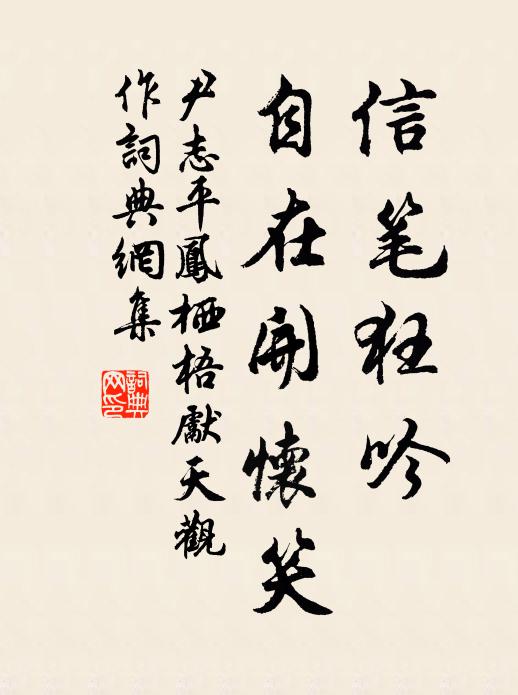 信笔狂吟
自在開懷笑
尹志平鳳栖梧獻天觀
作詞典網集
詞典
网印